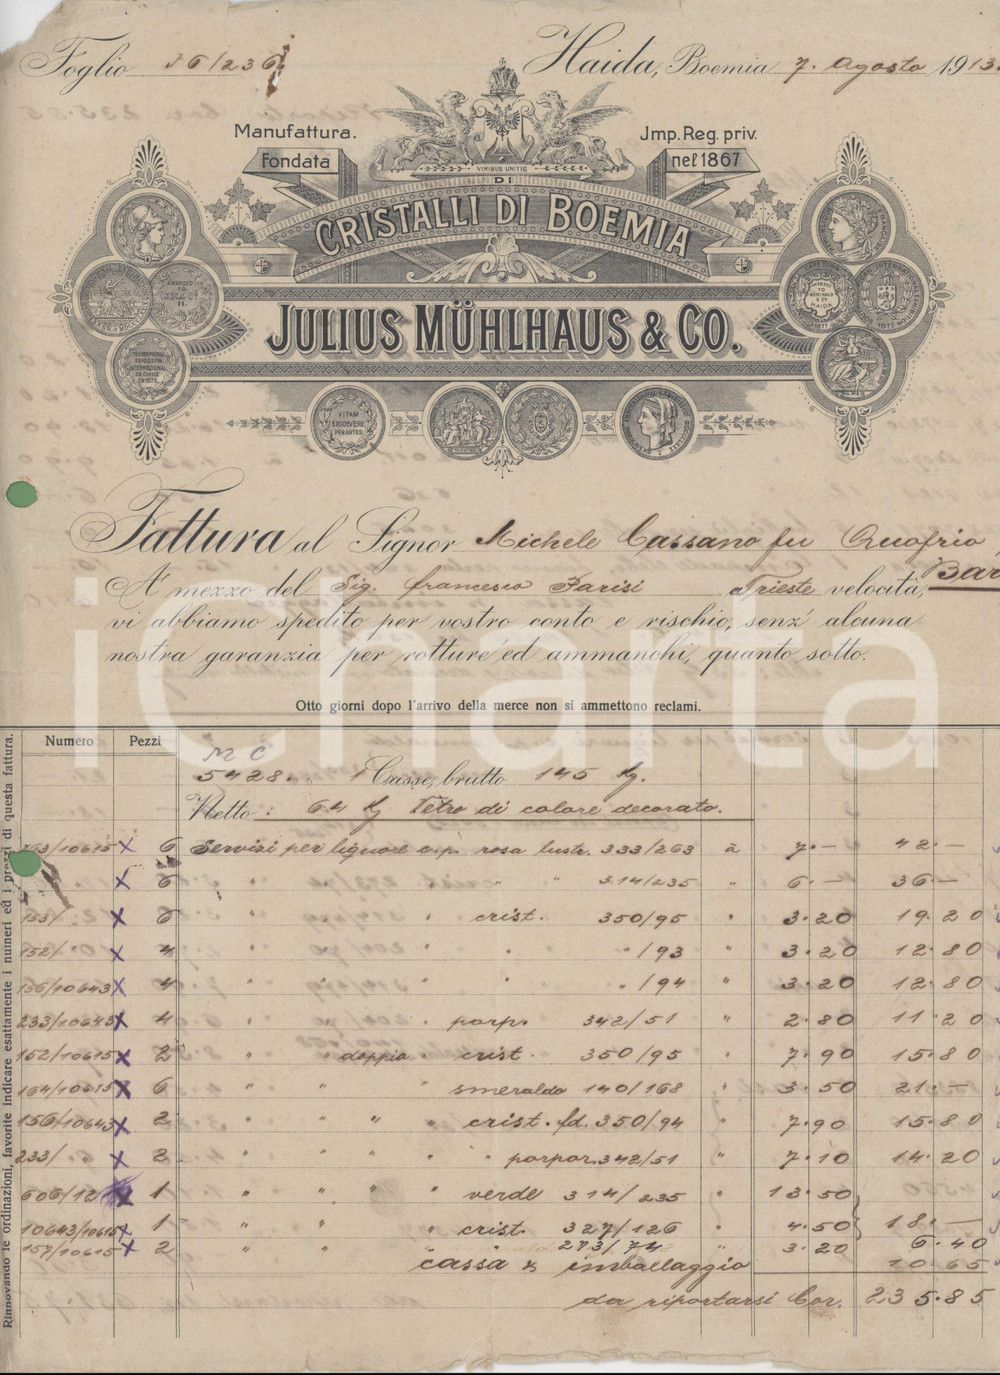 Foglio 36/236
Haida, Boemia 7. Agosto 1913.
Manufattura.
Jmp. Reg. priv.
Fondata
nel 1867
VIRIBUS UNITIS
DI
CRISTALLI DI BOEMIA
JULIUS MÜHLHAUS & CO.
VITAM EXCOLVERE PER ARTES
Fattura al Signor Michele Cassano fu Onofrio
Bar
A mezzo del Sig. Francesco Parisi Trieste velocità,
vi abbiamo spedito per vostro conto e rischio, senz' alcuna
nostra garanzia per rotture ed ammanchi, quanto sotto.
Otto giorni dopo l'arrivo della merce non si ammettono reclami.
iCharta
Rinnovando le ordinazioni, favorite indicare esattamente i numeri ed i prezzi di questa fattura.
Numero Pezzi
M C
5428. 1 Casse, brutto 145 Kg.
Netto: 64 Kg Vetro di colore decorato.
163/10615 x 6 Servizi per liquore c.p. rosa lustr. 333/263 à 7.— 42.—
" x 6 " " " " 314/235 " 6.— 36.—
153/ " x 6 " " " crist. 350/95 " 3.20 19.20
152/ " x 4 " " " " "/93 " 3.20 12.80
156/10643 x 4 " " " " "/94 " 3.20 12.80
233/10643 x 4 " " " porp. 342/51 " 2.80 11.20
152/10615 x 2 " " doppio " crist. 350/95 " 7.90 15.80
164/10615 x 6 " " " smeraldo 140/168 " 3.50 21.—
156/10643 x 2 " " " crist. fd. 350/94 7.90 15.80
233/ " x 2 " " " " porpor. 342/51 " 7.10 14.20
606/12 x 1 " " " verde 314/235 " 13.50
10643/10615 x 1 " " " crist. 327/126 " 4.50 18.—
157/10615 x 2 " " " 273/74 " 3.20 6.40
cassa & imballaggio 10.65
da riportarsi Cor. 235.85